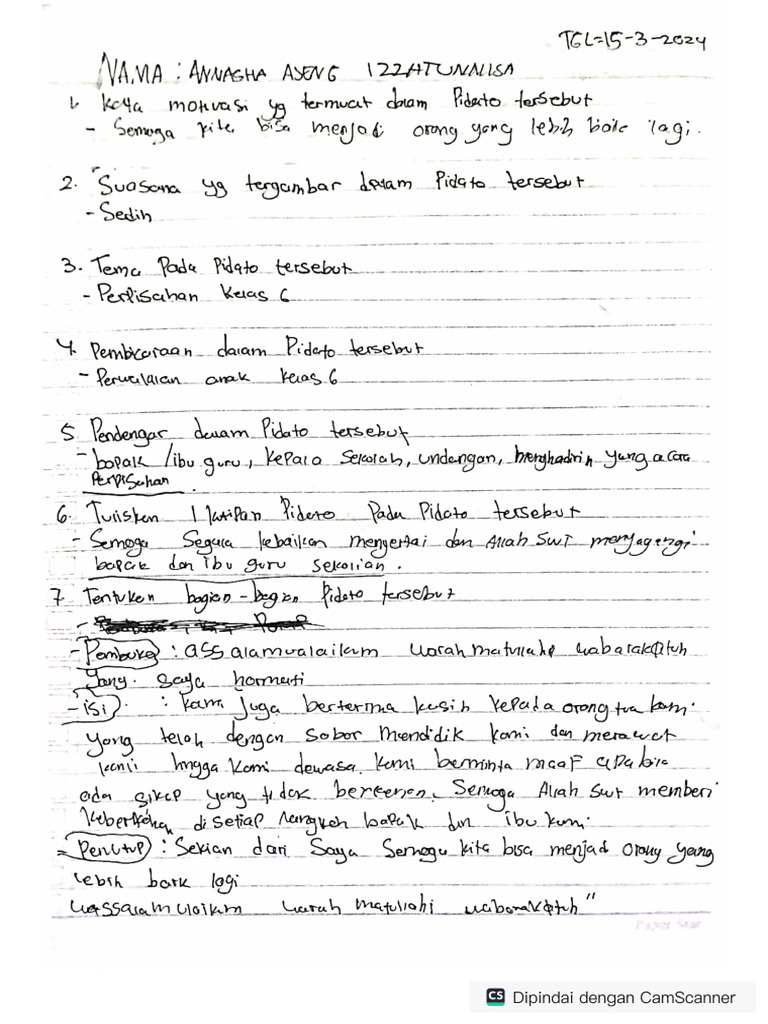 TGL=15-3-2024
NAMA : ANNAGHA AJENG IZZATUNNLISA
1. Kata motivasi yg termuat dalam Pidato tersebut
- Semoga kita bisa menjadi orang yang lebih baik lagi.
2. Suasana yg tergambar dalam Pidato tersebut
- Sedih
3. Tema Pada Pidato tersebut
- Perpisahan Kelas 6
4. Pembicaraan dalam Pidato tersebut
- Perwakilan anak kelas 6
5 Pendengar dalam Pidato tersebut
- bapak /ibu guru, kepala Sekolah, undangan, menghadirin yang acara
Perpisahan
6. Tuliskan 1 kutipan Pidato Pada Pidato tersebut
- Semoga Segala kebaikan menyertai dan Allah SWT
bapak dan ibu guru sekalian.
7 Tentukan bagian-bagian Pidato tersebut
- Pembuka : assalamualaikum warah matullahi wabarakatuh
Yang. saya hormati
- isi : kami Juga berterima kasih kepada orang tua kami
yang telah dengan Sabar Mendidik kami dan merawat
kami hingga kami dewasa. Kami berminta maaf apabila
ada sikap yang tidak berkenan. Semoga Allah SWT memberi
keberkahan disetiap langkah bapak dan ibu kami.
= Penutup : Sekian dari Saya Semoga kita bisa menjadi orang yang
lebih baik lagi
wassalamulaikum warah matullahi wabarakatuh"
Paper Star
CS Dipindai dengan CamScanner